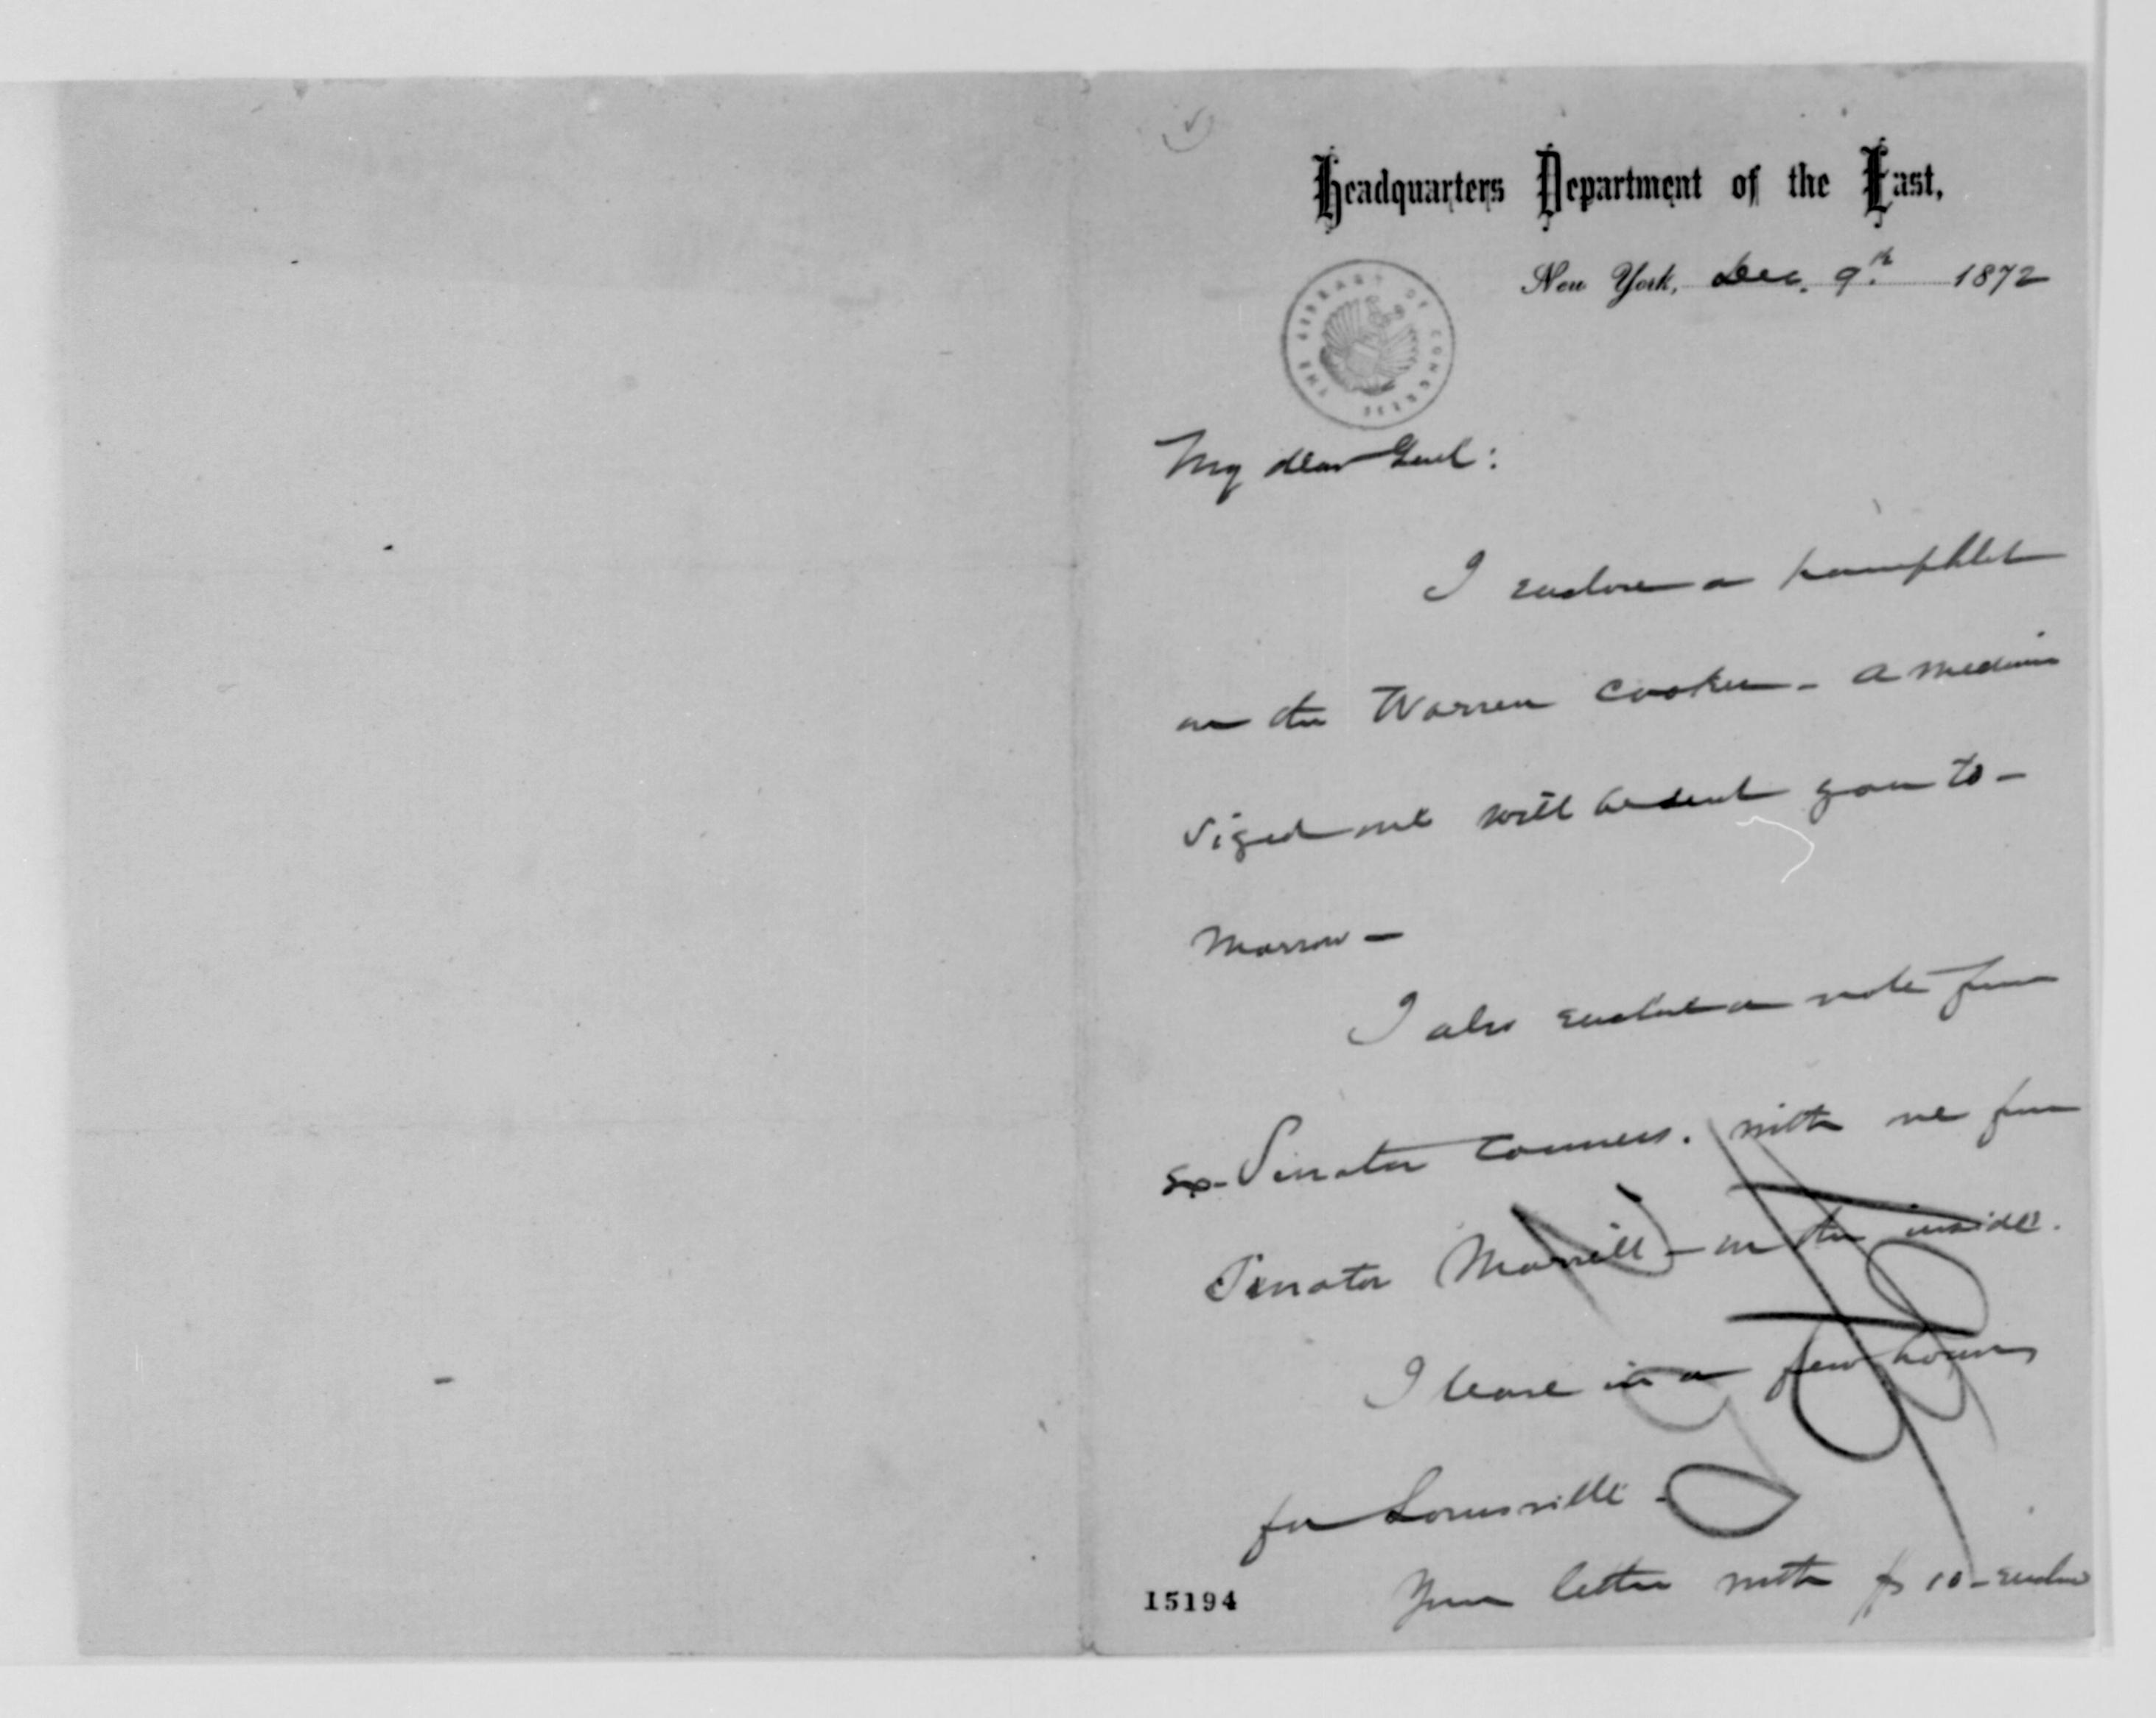 Headquarters Department of the East,
New York, Dec. 9th 1872
THE LIBRARY OF CONGRESS
My dear Genl:
I enclose a pamphlet
on the Warren Cooker - A medium
sized one will be sent you to-
morrow -
I also enclose a note from
Ex-Senator Conness. with one from
Senator Morrill - on the inside.
I leave in a few hours
for Louisville -
Your letter with $10 - enclo
15194